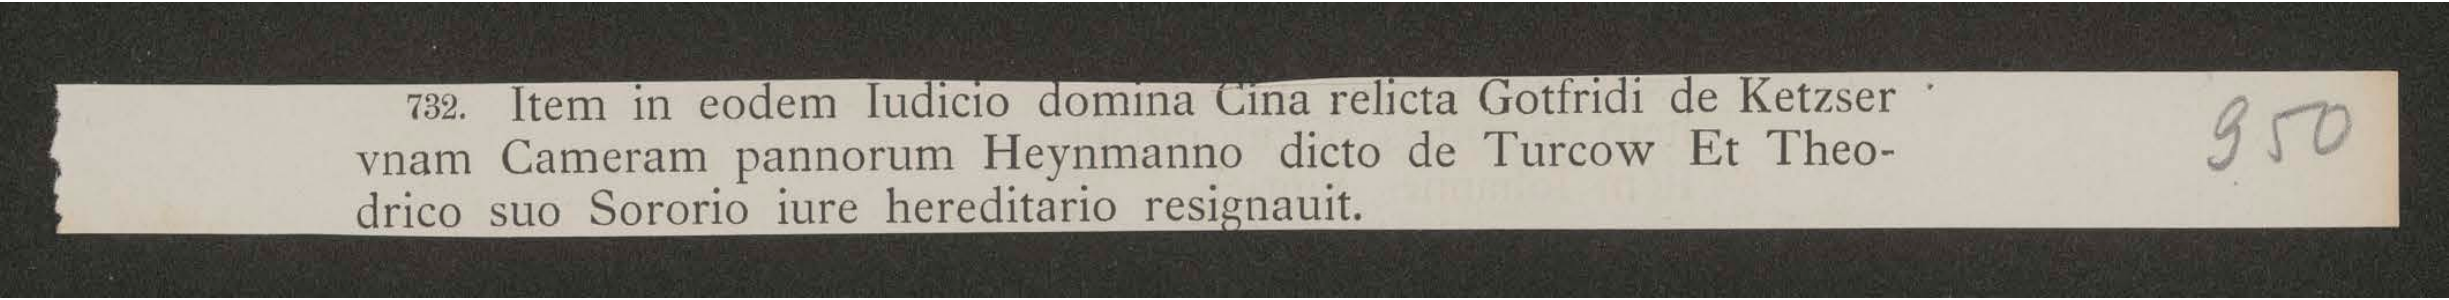 732. Item in eodem Iudicio domina Cina relicta Gotfridi de Ketzser
vnam Cameram pannorum Heynmanno dicto de Turcow Et Theo-
drico suo Sororio iure hereditario resignauit.
950